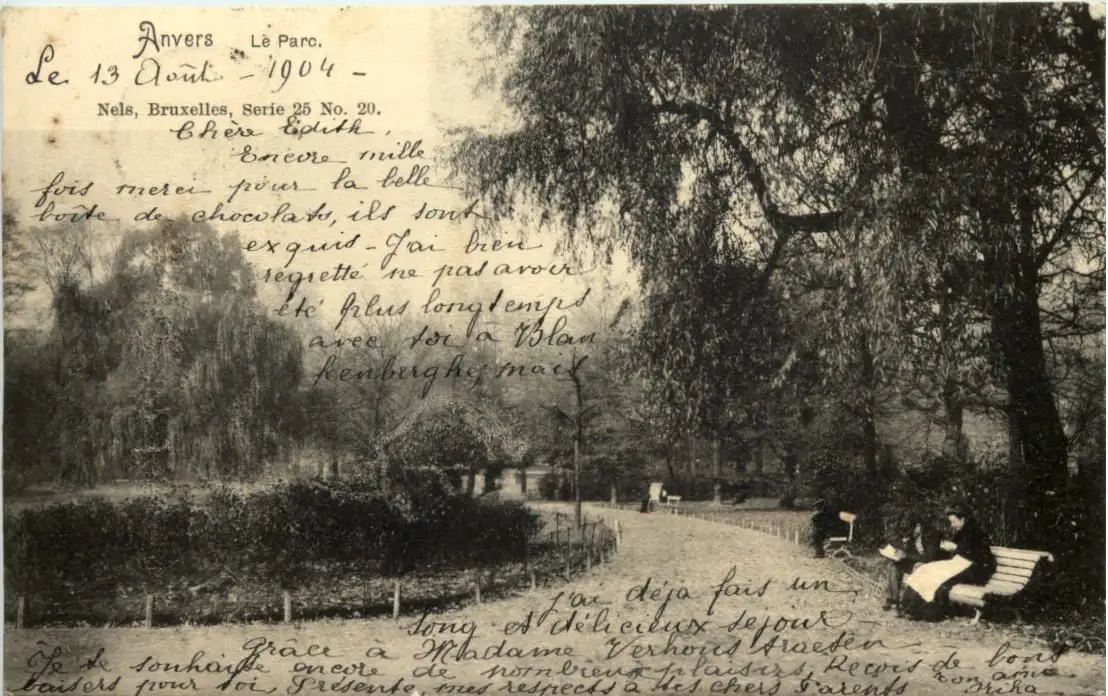 Anvers Le Parc.
Le 13 Août - 1904 -
Nels, Bruxelles, Serie 25 No. 20.
Chère Edith,
Encore mille
fois merci pour la belle
boîte de chocolats, ils sont
exquis - J'ai bien
regretté ne pas avoir
été plus longtemps
avec toi à Blan
kenberghe, mais
j'ai déja fais un
long et délicieux sejour
Grâce à Madame Verhoustraeten
Je te souhaite encore de nombreux plaisirs, Reçois de bons
baisers pour toi Présente, mes respects à tes chers Parents
ton amie